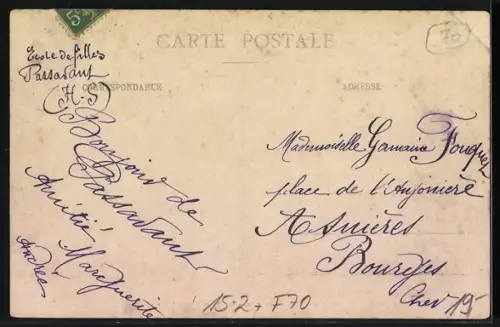 5c
CARTE POSTALE
70
Ecole de filles
Passavant
(H-S)
CORRESPONDANCE
Bonjour de
Passavant
Amitié Marguerite
Andrée
ADRESSE
Mademoiselle Germaine Fouquez
place de l'Anjonière
Asnières
Bourges
Cher
15-
15-2 + F70